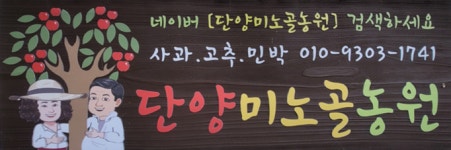 네이버 [단양미노골농원] 검색하세요
사과.고추.민박 010-9303-1741
단양미노골농원